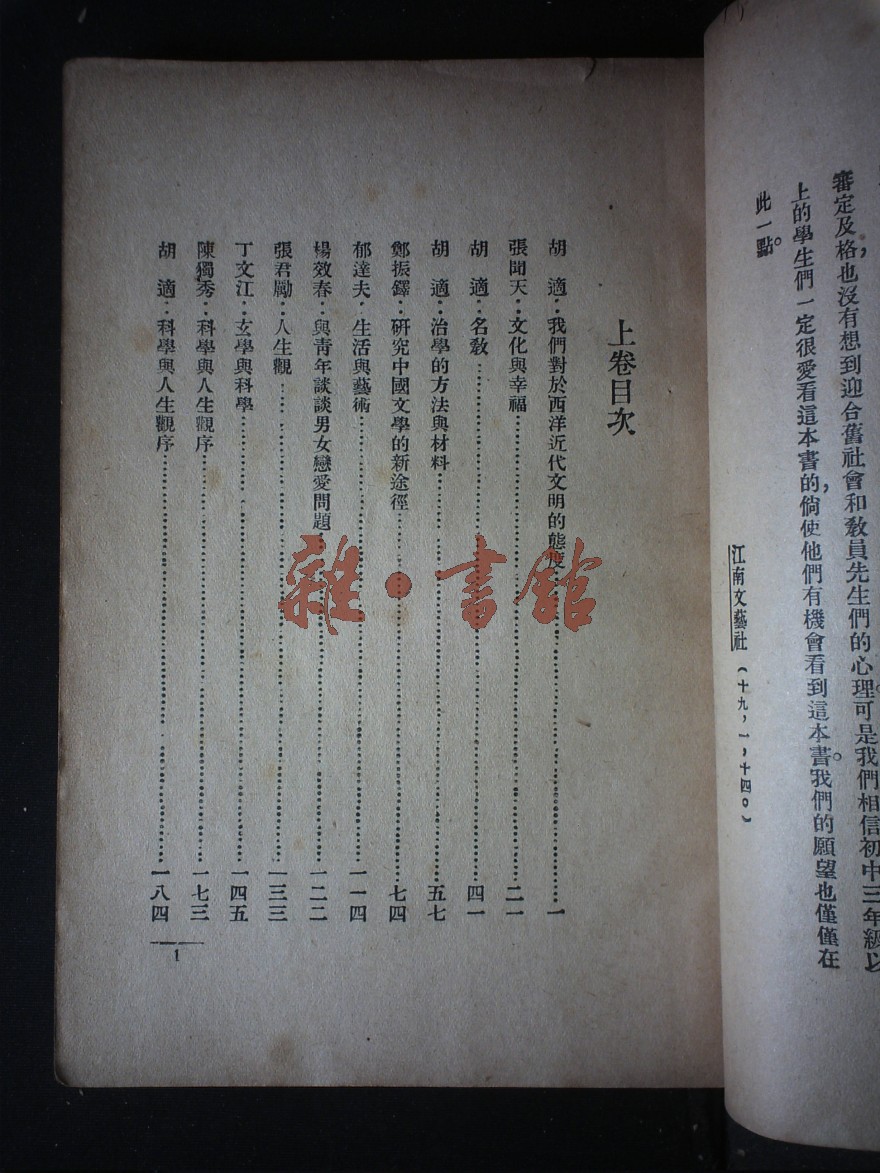 審定及格,也沒有想到迎合舊社會和教員先生們的心理。可是我們相信初中三年級以
上的學生們一定很愛看這本書的,倘使他們有機會看到這本書。我們的願望也僅僅在
此一點。
江南文藝社(十九,一,十四。)
上卷目次
胡 適:我們對於西洋近代文明的態度……一
張聞天:文化與幸福……二一
胡 適:名教……四一
胡 適:治學的方法與材料……五七
鄭振鐸:研究中國文學的新途徑……七四
郁達夫:生活與藝術……一一四
楊效春:與青年談談男女戀愛問題……一二二
張君勱:人生觀……一三三
丁文江:玄學與科學……一四五
陳獨秀:科學與人生觀序……一七三
胡 適:科學與人生觀序……一八四
1
雜·書館